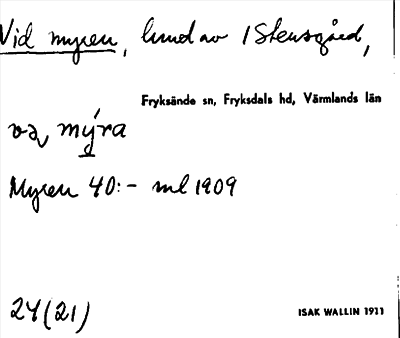 Vid myren, hmd av 1 Stensgård,
Fryksände sn, Fryksdals hd, Värmlands län
va myra
Myren 40:- ml 1909
24(21)
ISAK WALLIN 1911